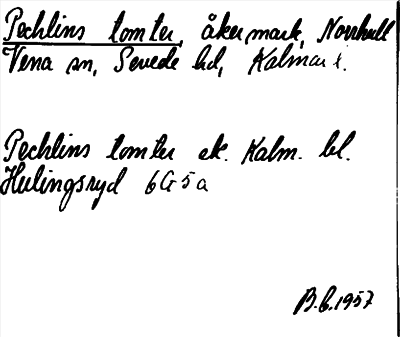 Pechlins tomter, åkermark, Norrhult
Vena sn, Sevede hd, Kalmar l.
Pechlins tomter ek. Kalm. bl.
Hulingsryd 6G5a
B.L.1957